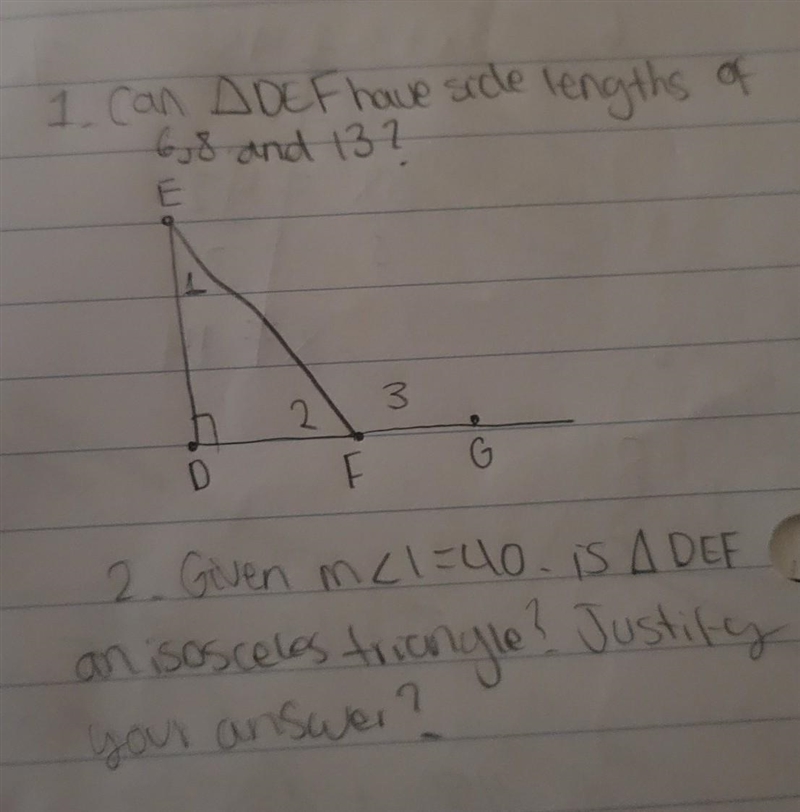 1. Can △DEF have side lengths of
6,8 and 13?
E
1
2
3
D
F
G
2. Given m∠1=40. is △DEF
an isosceles triangle? Justify
your answer?